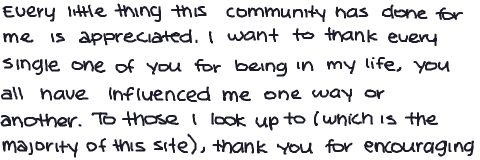 Every little thing this community has done for
me is appreciated. I want to thank every
single one of you for being in my life, you
all have influenced me one way or
another. To those I look up to (which is the
majority of this site), thank you for encouraging